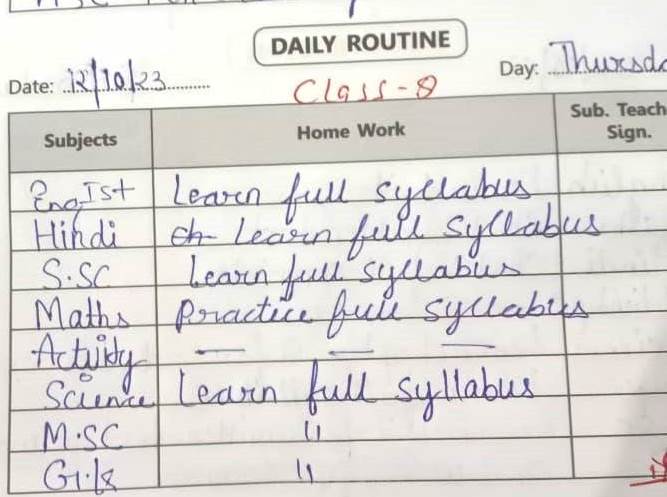 DAILY ROUTINE
Date: 12/10/23 Day: Thursda
Class-8
Subjects Home Work Sub. Teach Sign.
Eng Ist Learn full syllabus
Hindi Learn full syllabus
S.SC Learn full syllabus
Maths Practice full syllabus
Activity — — —
Science Learn full syllabus
M.SC "
G.K "